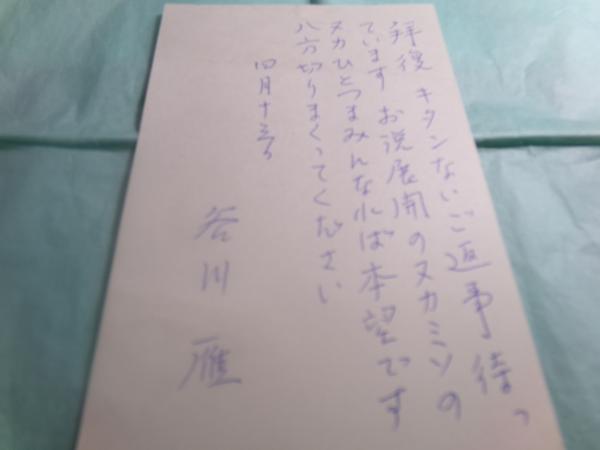 拝復 キタンないご返事待っ
ています お説展開のヌカミソの
ヌカひとつまみんなれば本望です
八方切りまくってください
四月十三日
谷川 雁